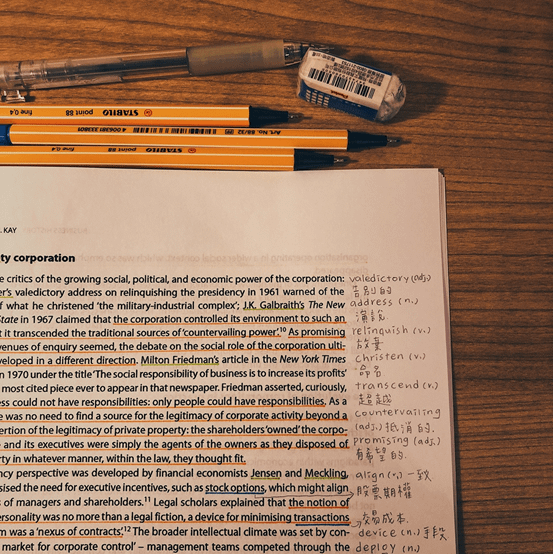 STABILO point 88 fine 0,4
Art. No. 88/32 4 006381 333801
STABILO point 88 fine 0,4
Pentel
. KAY
ty corporation
e critics of the growing social, political, and economic power of the corporation:
er's valedictory address on relinquishing the presidency in 1961 warned of the
f what he christened 'the military-industrial complex'; J.K. Galbraith's The New
State in 1967 claimed that the corporation controlled its environment to such an
t it transcended the traditional sources of 'countervailing power'.10 As promising
venues of enquiry seemed, the debate on the social role of the corporation ulti-
veloped in a different direction. Milton Friedman's article in the New York Times
n 1970 under the title 'The social responsibility of business is to increase its profits'
most cited piece ever to appear in that newspaper. Friedman asserted, curiously,
ess could not have responsibilities: only people could have responsibilities. As a
e was no need to find a source for the legitimacy of corporate activity beyond a
ertion of the legitimacy of private property: the shareholders 'owned' the corpo-
e and its executives were simply the agents of the owners as they disposed of
rty in whatever manner, within the law, they thought fit.
ncy perspective was developed by financial economists Jensen and Meckling,
sised the need for executive incentives, such as stock options, which might align
s of managers and shareholders.11 Legal scholars explained that the notion of
ersonality was no more than a legal fiction, a device for minimising transactions
m was a 'nexus of contracts'.12 The broader intellectual climate was set by con-
market for corporate control' – management teams competed through the
valedictory (adj.)
告別的
address (n.)
演說
relinquish (v.)
放棄
christen (v.)
命名
transcend (v.)
超越
countervailing
(adj.) 抵消的.
promising (adj.)
有希望的.
align (v.) 一致
股票期權
交易成本.
device (n.) 手段
deploy (n.)